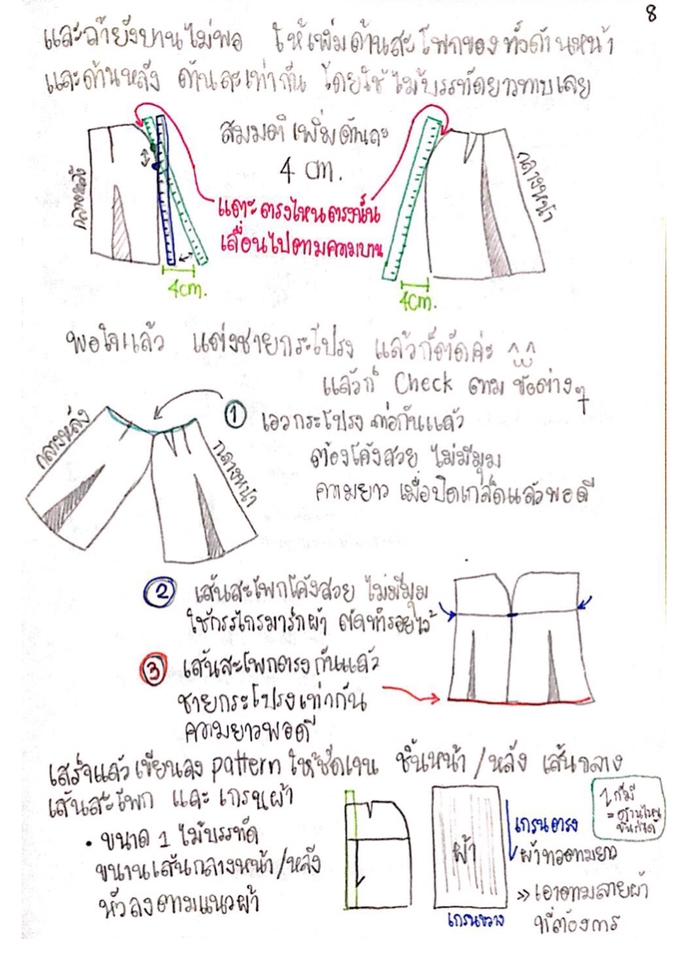 8
และถ้ายังบานไม่พอ ให้เพิ่มด้านสะโพกของทั้งด้านหน้า
และด้านหลัง ด้านละเท่ากัน โดยใช้ไม้บรรทัดยาวทาบเลย
สมมติเพิ่มด้านละ
4 cm.
กลางหลัง
กลางหน้า
แตะตรงไหนตรงนั้น
เลื่อนไปตามความบาน
4cm.
4cm.
พอใจแล้ว แต่งชายกระโปรง แล้วก็ตัดค่ะ ^^
แล้วก็ Check ตามข้อต่างๆ
กลางหลัง
กลางหน้า
① เอวกระโปรง ต่อกันแล้ว
ต้องโค้งสวย ไม่มีมุม
ความยาวเมื่อปิดเกล็ดแล้วพอดี
② เส้นสะโพกโค้งสวย ไม่มีมุม
ใช้กรรไกรมาร์กผ้า ตัดทำรอยไว้
③ เส้นสะโพกตรงกันแล้ว
ชายกระโปรงเท่ากัน
ความยาวพอดี
เสร็จแล้วเขียนลง pattern ให้ชัดเจน ชิ้นหน้า/หลัง เส้นกลาง
เส้นสะโพก และ เกรนผ้า
• ขนาด 1 ไม้บรรทัด
ขนานเส้นกลางหน้า/หลัง
หัวลงตามแนวผ้า
ผ้า
เกรนตรง
ผ้าทอตามยาว
» เอาตามลายผ้า
ที่ต้องการ
เกรนขวาง